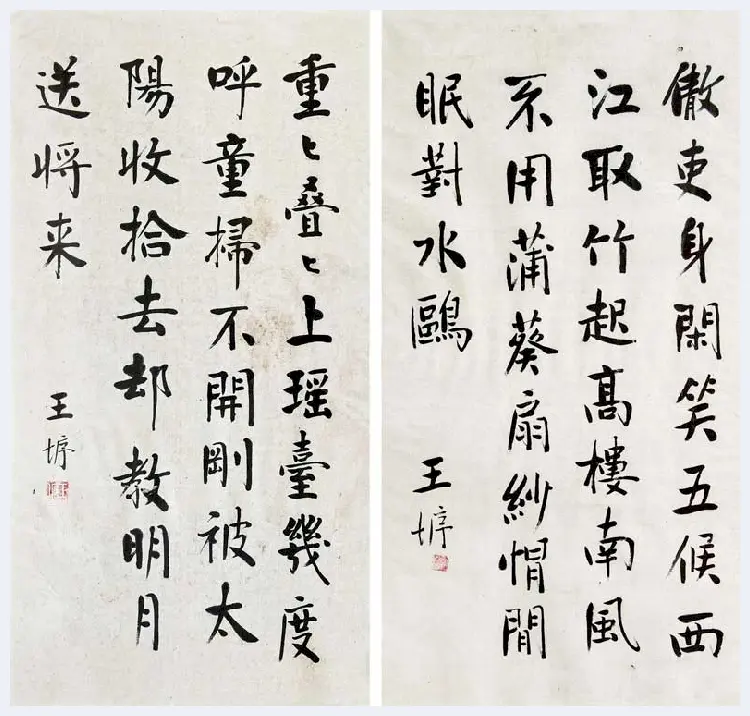 傲吏身閑笑五候西
江取竹起高樓南風
不用蒲葵扇紗帽閒
眠對水鷗
王垿
重〻疊〻上瑶臺幾度
呼童掃不開剛被太
陽收拾去却教明月
送将来
王垿